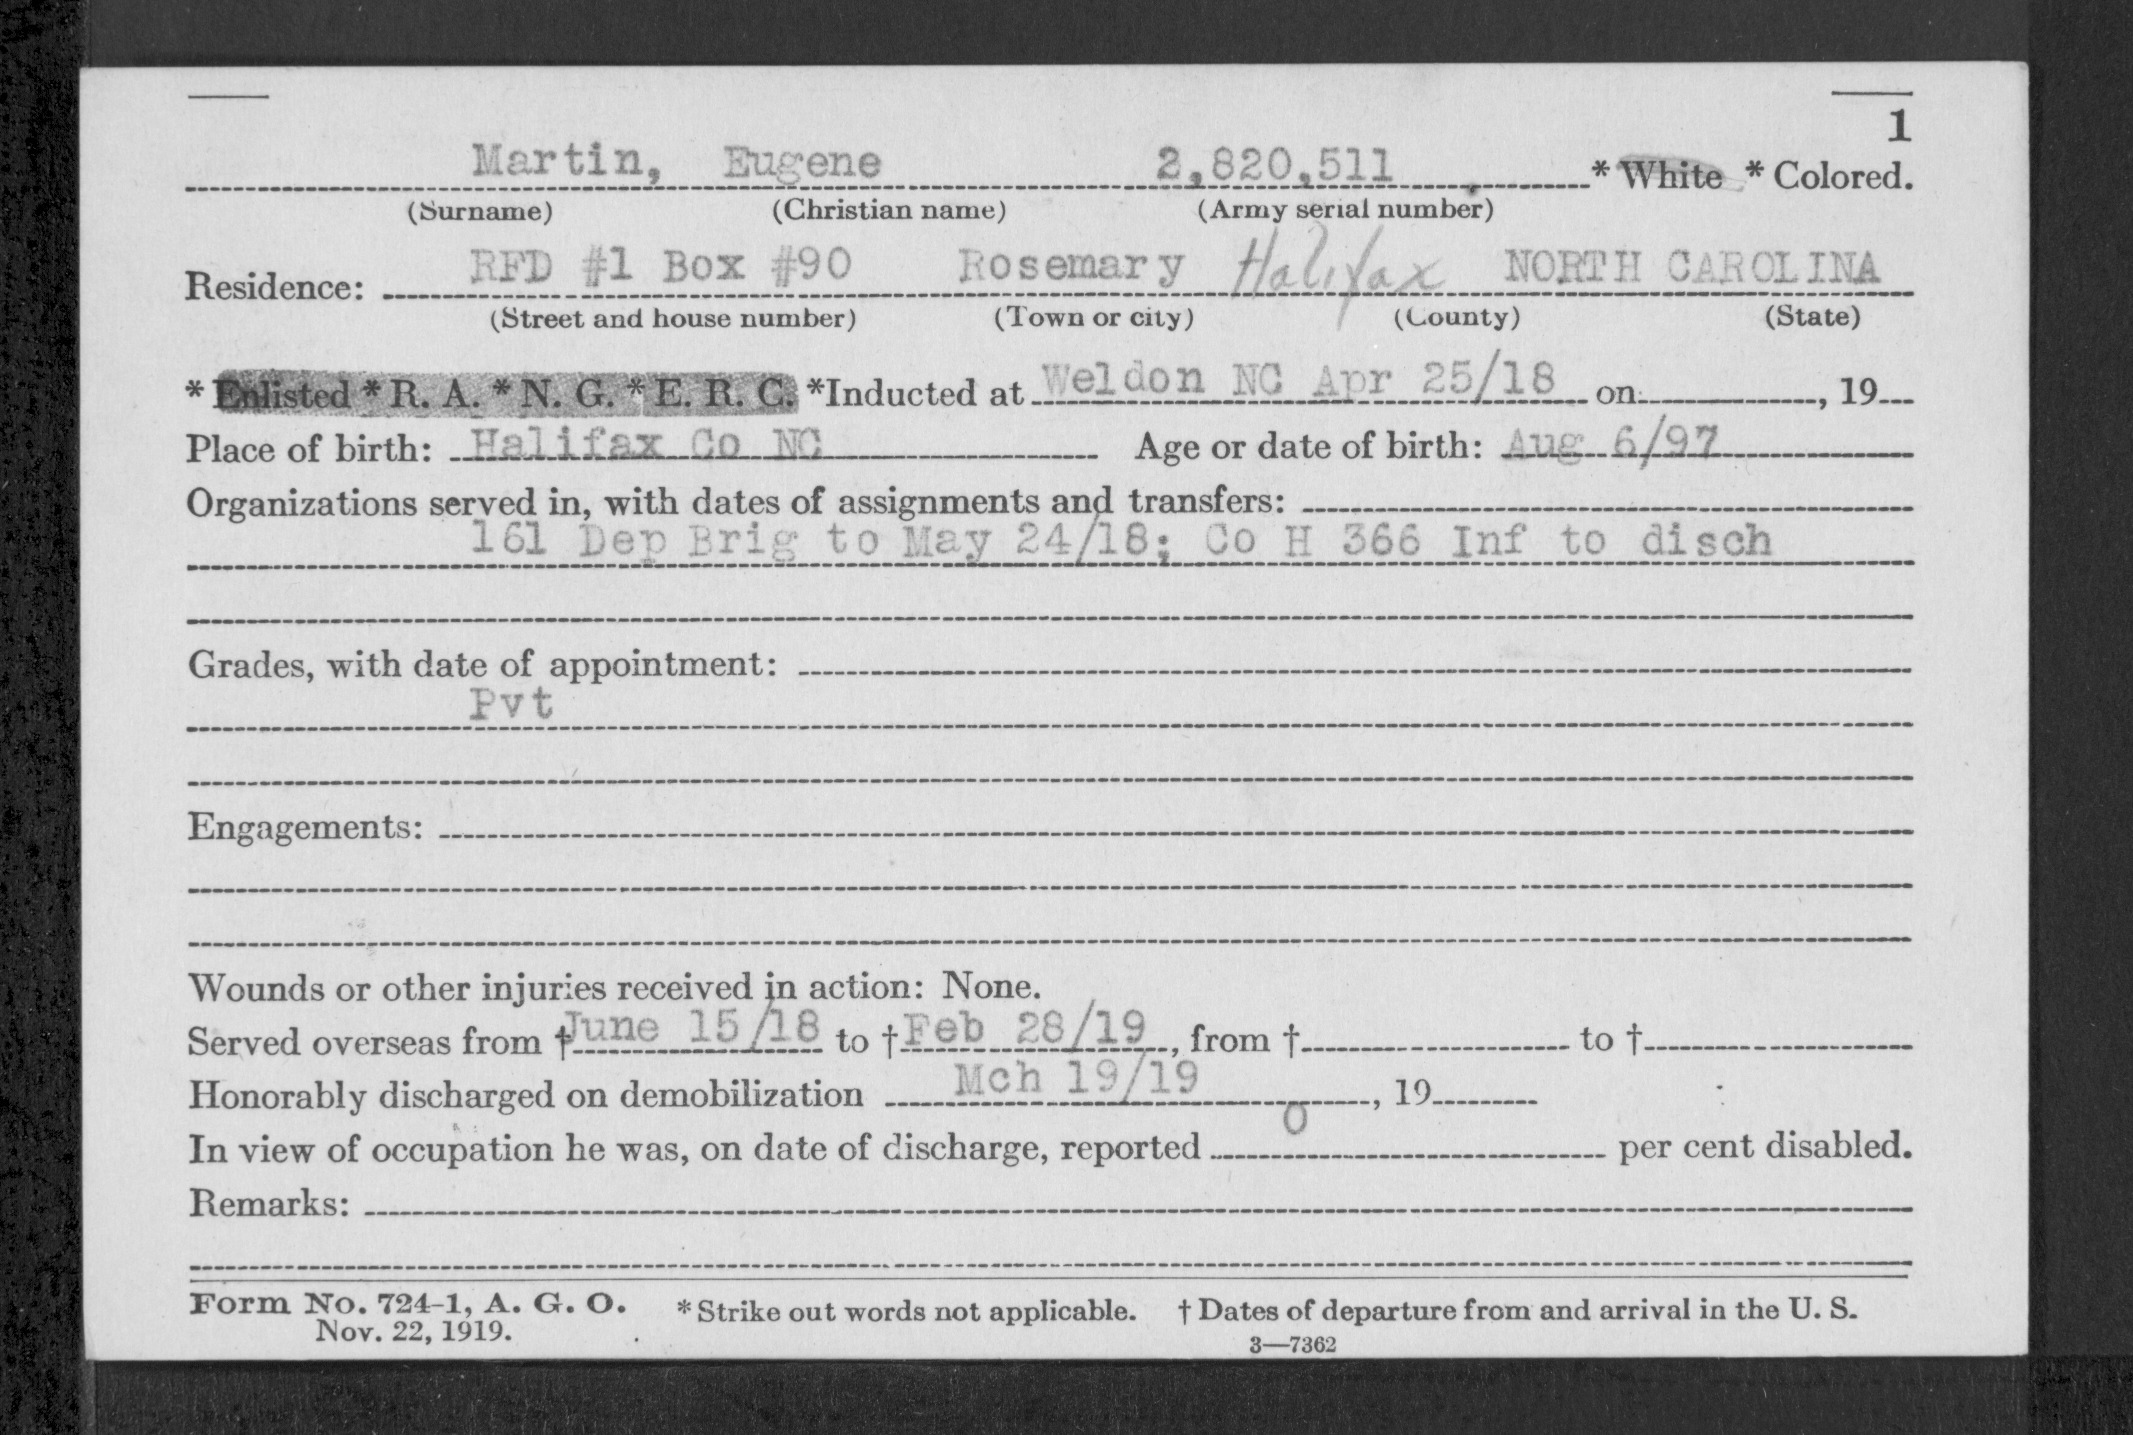 1
Martin, Eugene 2,820,511 * White * Colored.
(Surname) (Christian name) (Army serial number)
Residence: RFD #1 Box #90 Rosemary Halifax NORTH CAROLINA
(Street and house number) (Town or city) (County) (State)
* Enlisted * R. A. * N. G. * E. R. C. *Inducted at Weldon NC Apr 25/18 on , 19
Place of birth: Halifax Co NC Age or date of birth: Aug 6/97
Organizations served in, with dates of assignments and transfers:
161 Dep Brig to May 24/18; Co H 366 Inf to disch
Grades, with date of appointment:
Pvt
Engagements:
Wounds or other injuries received in action: None.
Served overseas from † June 15/18 to † Feb 28/19, from † to †
Honorably discharged on demobilization Mch 19/19, 19
In view of occupation he was, on date of discharge, reported 0 per cent disabled.
Remarks:
Form No. 724-1, A. G. O. * Strike out words not applicable. † Dates of departure from and arrival in the U. S.
Nov. 22, 1919. 3—7362